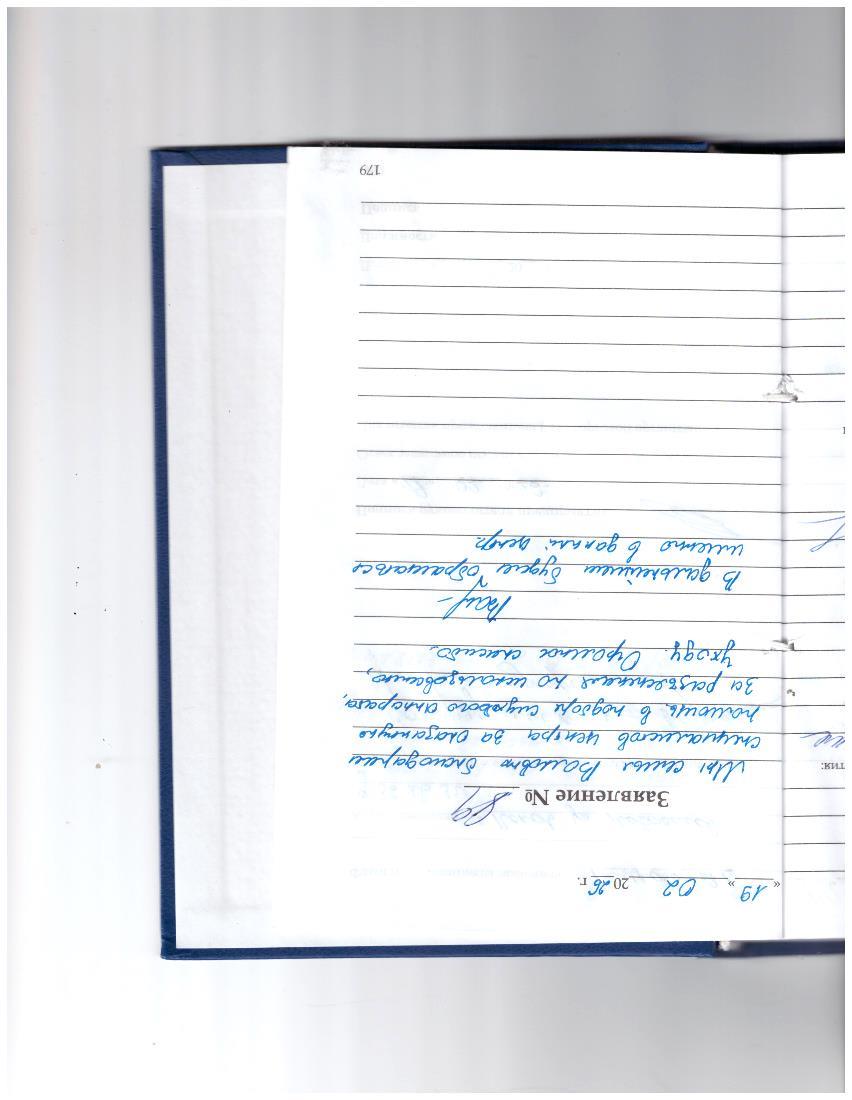 « 19 » 02 2026 г.
Заявление № 89
Мы семья благодарим
специалистов центра за оказанную
помощь в подборе слухового аппарата,
за разъяснения по использованию,
уходу. Огромное спасибо.
В дальнейшем будем обращаться
именно в данный центр.
179
тия: